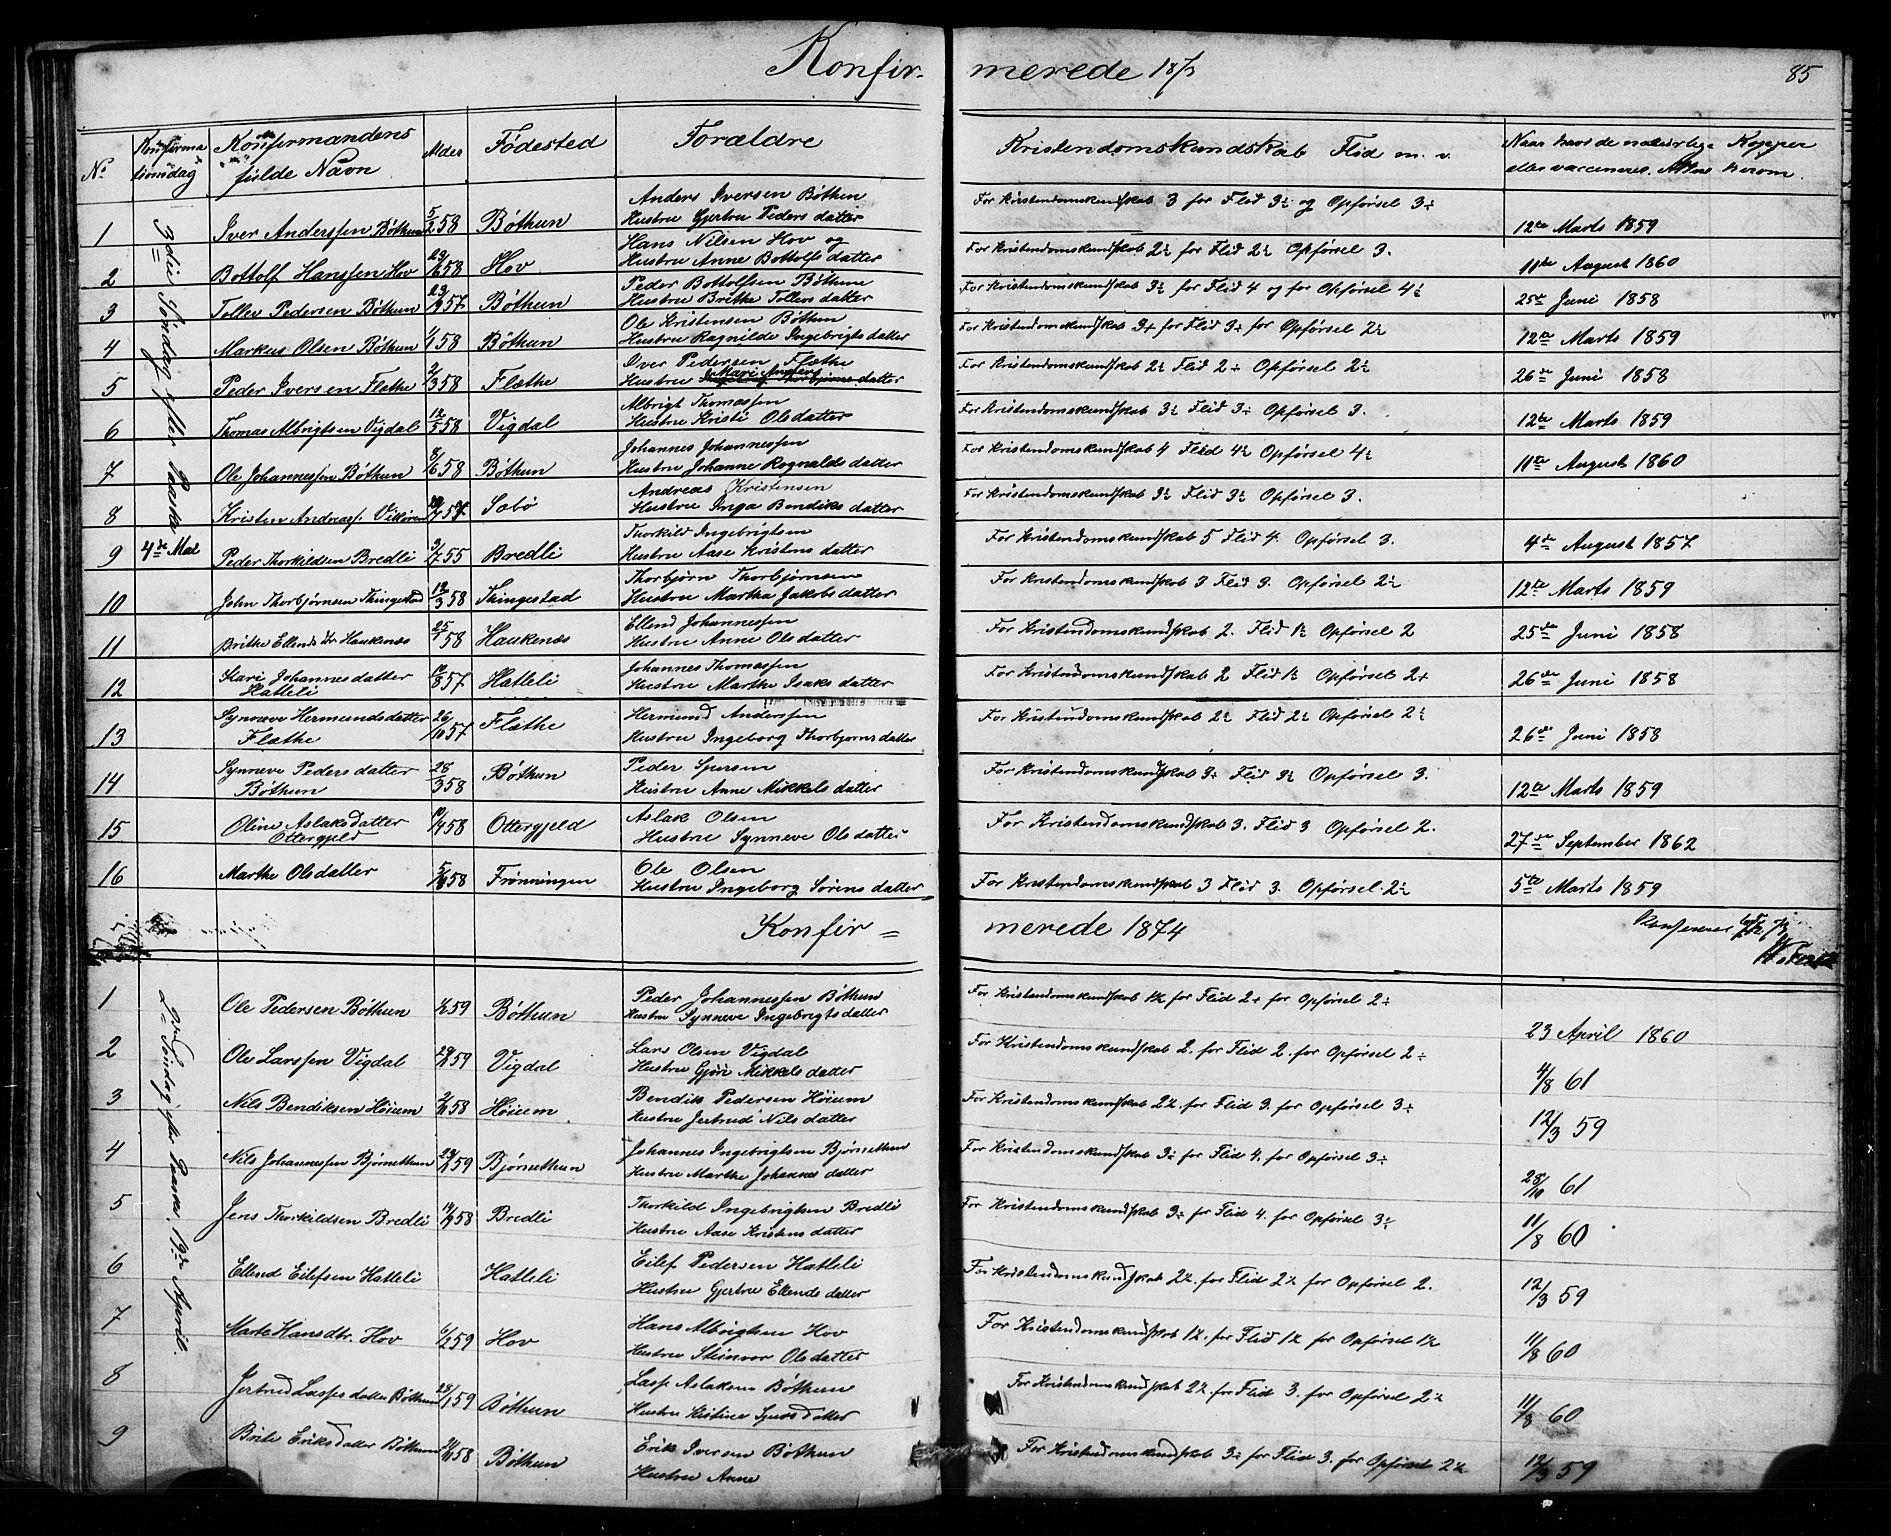 Konfir-
merede 1873
85
No
Konfirma
tionsdag
Konfirmandens
fulde Navn
Alder
Fødested
Forældre
Kristendomskundskab Flid m. v.
Naar havt de naturlige Kopper
eller vaccineret. Attest herom.
3die Søndag efter Paaske
4de Mai
1 Iver Anderssen Bøthun 5/2 58 Bøthun
Anders Iversen Bøthun
Hustru Gjertru Peders datter
For Kristendomskundskab 3 for Flid 3÷ og Opførsel 3÷
12te Marts 1859
2 Bottolf Hanssen Hov 58 Hov
Hans Nilsen Hov og
Hustru Anne Bottolfs datter
For Kristendomskundskab 2½ for Flid 2½ Opførsel 3.
11te August 1860
3 Tollev Pedersen Bøthun 57 Bøthun
Peder Bottolfsen Bøthun
Hustru Brithe Tollevs datter
For Kristendomskundskab 3½ for Flid 4 og for Opførsel 4½
25de Juni 1858
4 Markus Olsen Bøthun 1/1 58 Bøthun
Ole Kristensen Bøthun
Hustru Ragnilde Ingebrigts datter
For Kristendomskundskab 3+ for Flid 3÷ for Opførsel 2½
12te Marts 1859
5 Peder Iversen Flæthe 2/3 58 Flæthe
Iver Pedersen Flæthe
Hustru Mari Anders datter
For Kristendomskundskab 2½ Flid 2÷ Opførsel 2½
26de Juni 1858
6 Thomas Albrigtsen Vigdal 12/5 58 Vigdal
Albrigt Thomassen
Hustru Kristi Olsdatter
For Kristendomskundskab 3½ Flid 3÷ Opførsel 3.
12te Marts 1859
7 Ole Johannessen Bøthun 3/6 58 Bøthun
Johannes Johannessen
Hustru Johanne Rognalds datter
For Kristendomskundskab 4 Flid 4½ Opførsel 4½
11te August 1860
8 Kristen Andreass. Vikøren 57 Sæbø
Andreas Kristensen
Hustru Inga Bendiks datter
For Kristendomskundskab 3½ Flid 3½ Opførsel 3.
9 Peder Thorkildsen Bredli 2/7 55 Bredli
Thorkild Ingebrigtsen
Hustru Aase Kristens datter
For Kristendomskundskab 5 Flid 4. Opførsel 3.
4de August 1857
10 John Thorbjørnsen Thingestad 12/3 58 Thingestad
Thorbjørn Thorbjørnsen
Hustru Martha Jakobs datter
For Kristendomskundskab 3 Flid 3. Opførsel 2½
12te Marts 1859
11 Brithe Ellends Dr Haukenæs 25/1 58 Haukenæs
Ellend Johannessen
Hustru Anne Ols datter
For Kristendomskundskab 2. Flid 1½ Opførsel 2
25de Juni 1858
12 Kari Johannesdatter
Hatleli
57 Hatleli
Johannes Thomassen
Hustru Marthe Isaks datter
For Kristendomskundskab 2 Flid 1½ Opførsel 2+
26de Juni 1858
13 Synneve Hermundsdatter
Flæthe
26/10 57 Flæthe
Hermund Anderssen
Hustru Ingeborg Thorbjørns datter
For Kristendomskundskab 2½ Flid 2½ Opførsel 2½
26de Juni 1858
14 Synneve Peders datter
Bøthun
28/3 58 Bøthun
Peder Sjursen
Hustru Anne Mikkels datter
For Kristendomskundskab 3÷ Flid 3½ Opførsel 3.
12te Marts 1859
15 Oline Aslaksdatter
Ottergjeld
58 Ottergjeld
Aslak Olsen
Hustru Synneve Ols datter
For Kristendomskundskab 3. Flid 3 Opførsel 2.
27de September 1862
16 Marthe Olsdatter 58 Frønningen
Ole Olsen
Hustru Ingeborg Sørens datter
For Kristendomskundskab 3 Flid 3. Opførsel 2½
5te Marts 1859
Konfir=
merede 1874
2den Søndag efter Paaske. 19de April.
1 Ole Pedersen Bøthun 59 Bøthun
Peder Johannessen Bøthun
Hustru Synneve Ingebrigts datter
For Kristendomskundskab 1½ for Flid 2+ for Opførsel 2÷
23 April 1860
2 Ole Larssen Vigdal 59 Vigdal
Lars Olsen Vigdal
Hustru Gjøri Mikkels datter
For Kristendomskundskab 2. for Flid 2. for Opførsel 2÷
4/8 61
3 Nils Bendiksen Høium 58 Høium
Bendik Pedersen Høium
Hustru Jertrud Nils datter
For Kristendomskundskab 2½. for Flid 3. for Opførsel 3÷
12/3 59
4 Nils Johannessen Bjørnethun 59 Bjørnethun
Johannes Ingebrigtsen Bjørnethun
Hustru Marthe Johannes datter
For Kristendomskundskab 3÷ for Flid 4. for Opførsel 3÷
28/10 61
5 Jens Thorkildsen Bredli 58 Bredli
Thorkild Ingebrigtsen Bredli
Hustru Aase Kristens datter
For Kristendomskundskab 3÷ for Flid 4. for Opførsel 3½
11/8 60
6 Ellend Eilefsen Hatleli Hatleli
Eilef Pedersen Hatleli
Hustru Gjertru Ellends datter
For Kristendomskundskab 2½. for Flid 2½ for Opførsel 2.
12/3 59
7 Marte Hansdtr. Hov 59 Hov
Hans Albrigtsen Hov
Hustru Steinvor Olsdatter
For Kristendomskundskab 1½. for Flid 1½ for Opførsel 1½
11/8 60
8 Jertrud Lasses datter Bøthun 59 Bøthun
Lasse Aslaksen Bøthun
Hustru Kistine Sjursdatter
For Kristendomskundskab 2½. for Flid 3. for Opførsel 2½
11/8 60
9 Brite Eriksdatter Bøthun 58 Bøthun
Erik Iversen Bøthun
Hustru Anne
For Kristendomskundskab 3÷ for Flid 3. for Opførsel 2½
12/3 59